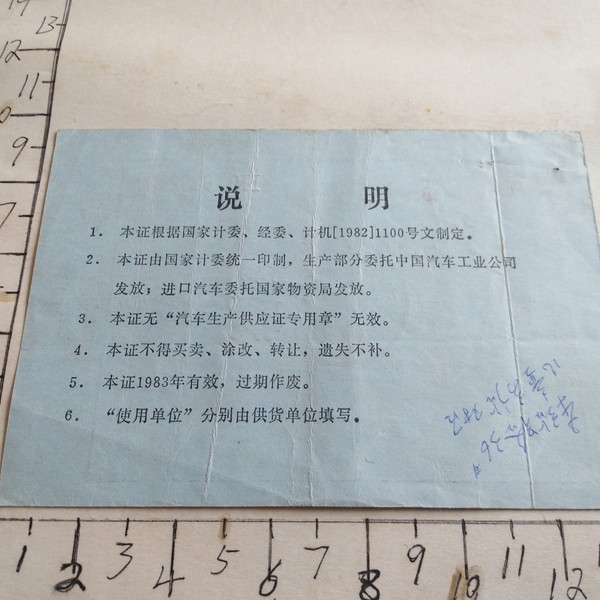 说 明
1. 本证根据国家计委、经委、计机[1982]1100号文制定。
2. 本证由国家计委统一印制，生产部分委托中国汽车工业公司
发放；进口汽车委托国家物资局发放。
3. 本证无“汽车生产供应证专用章”无效。
4. 本证不得买卖、涂改、转让，遗失不补。
5. 本证1983年有效，过期作废。
6. “使用单位”分别由供货单位填写。
13
12
11
9
7
1 2 3 4 5 6 7 8 9 10 11 12